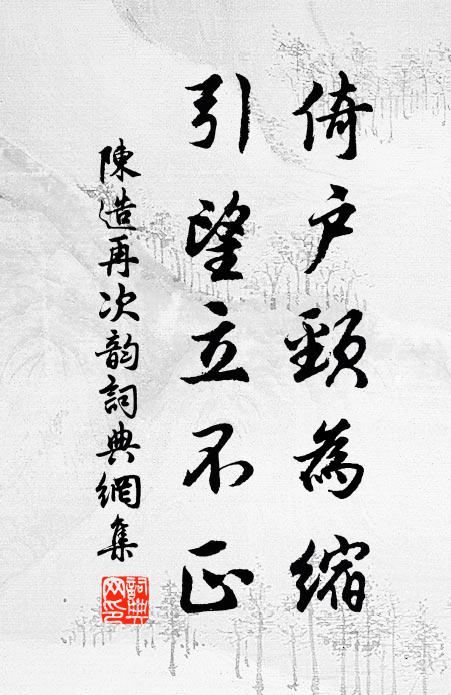 倚户頸為縮
引望立不正
陳造再次韵詞典網集
詞典網印